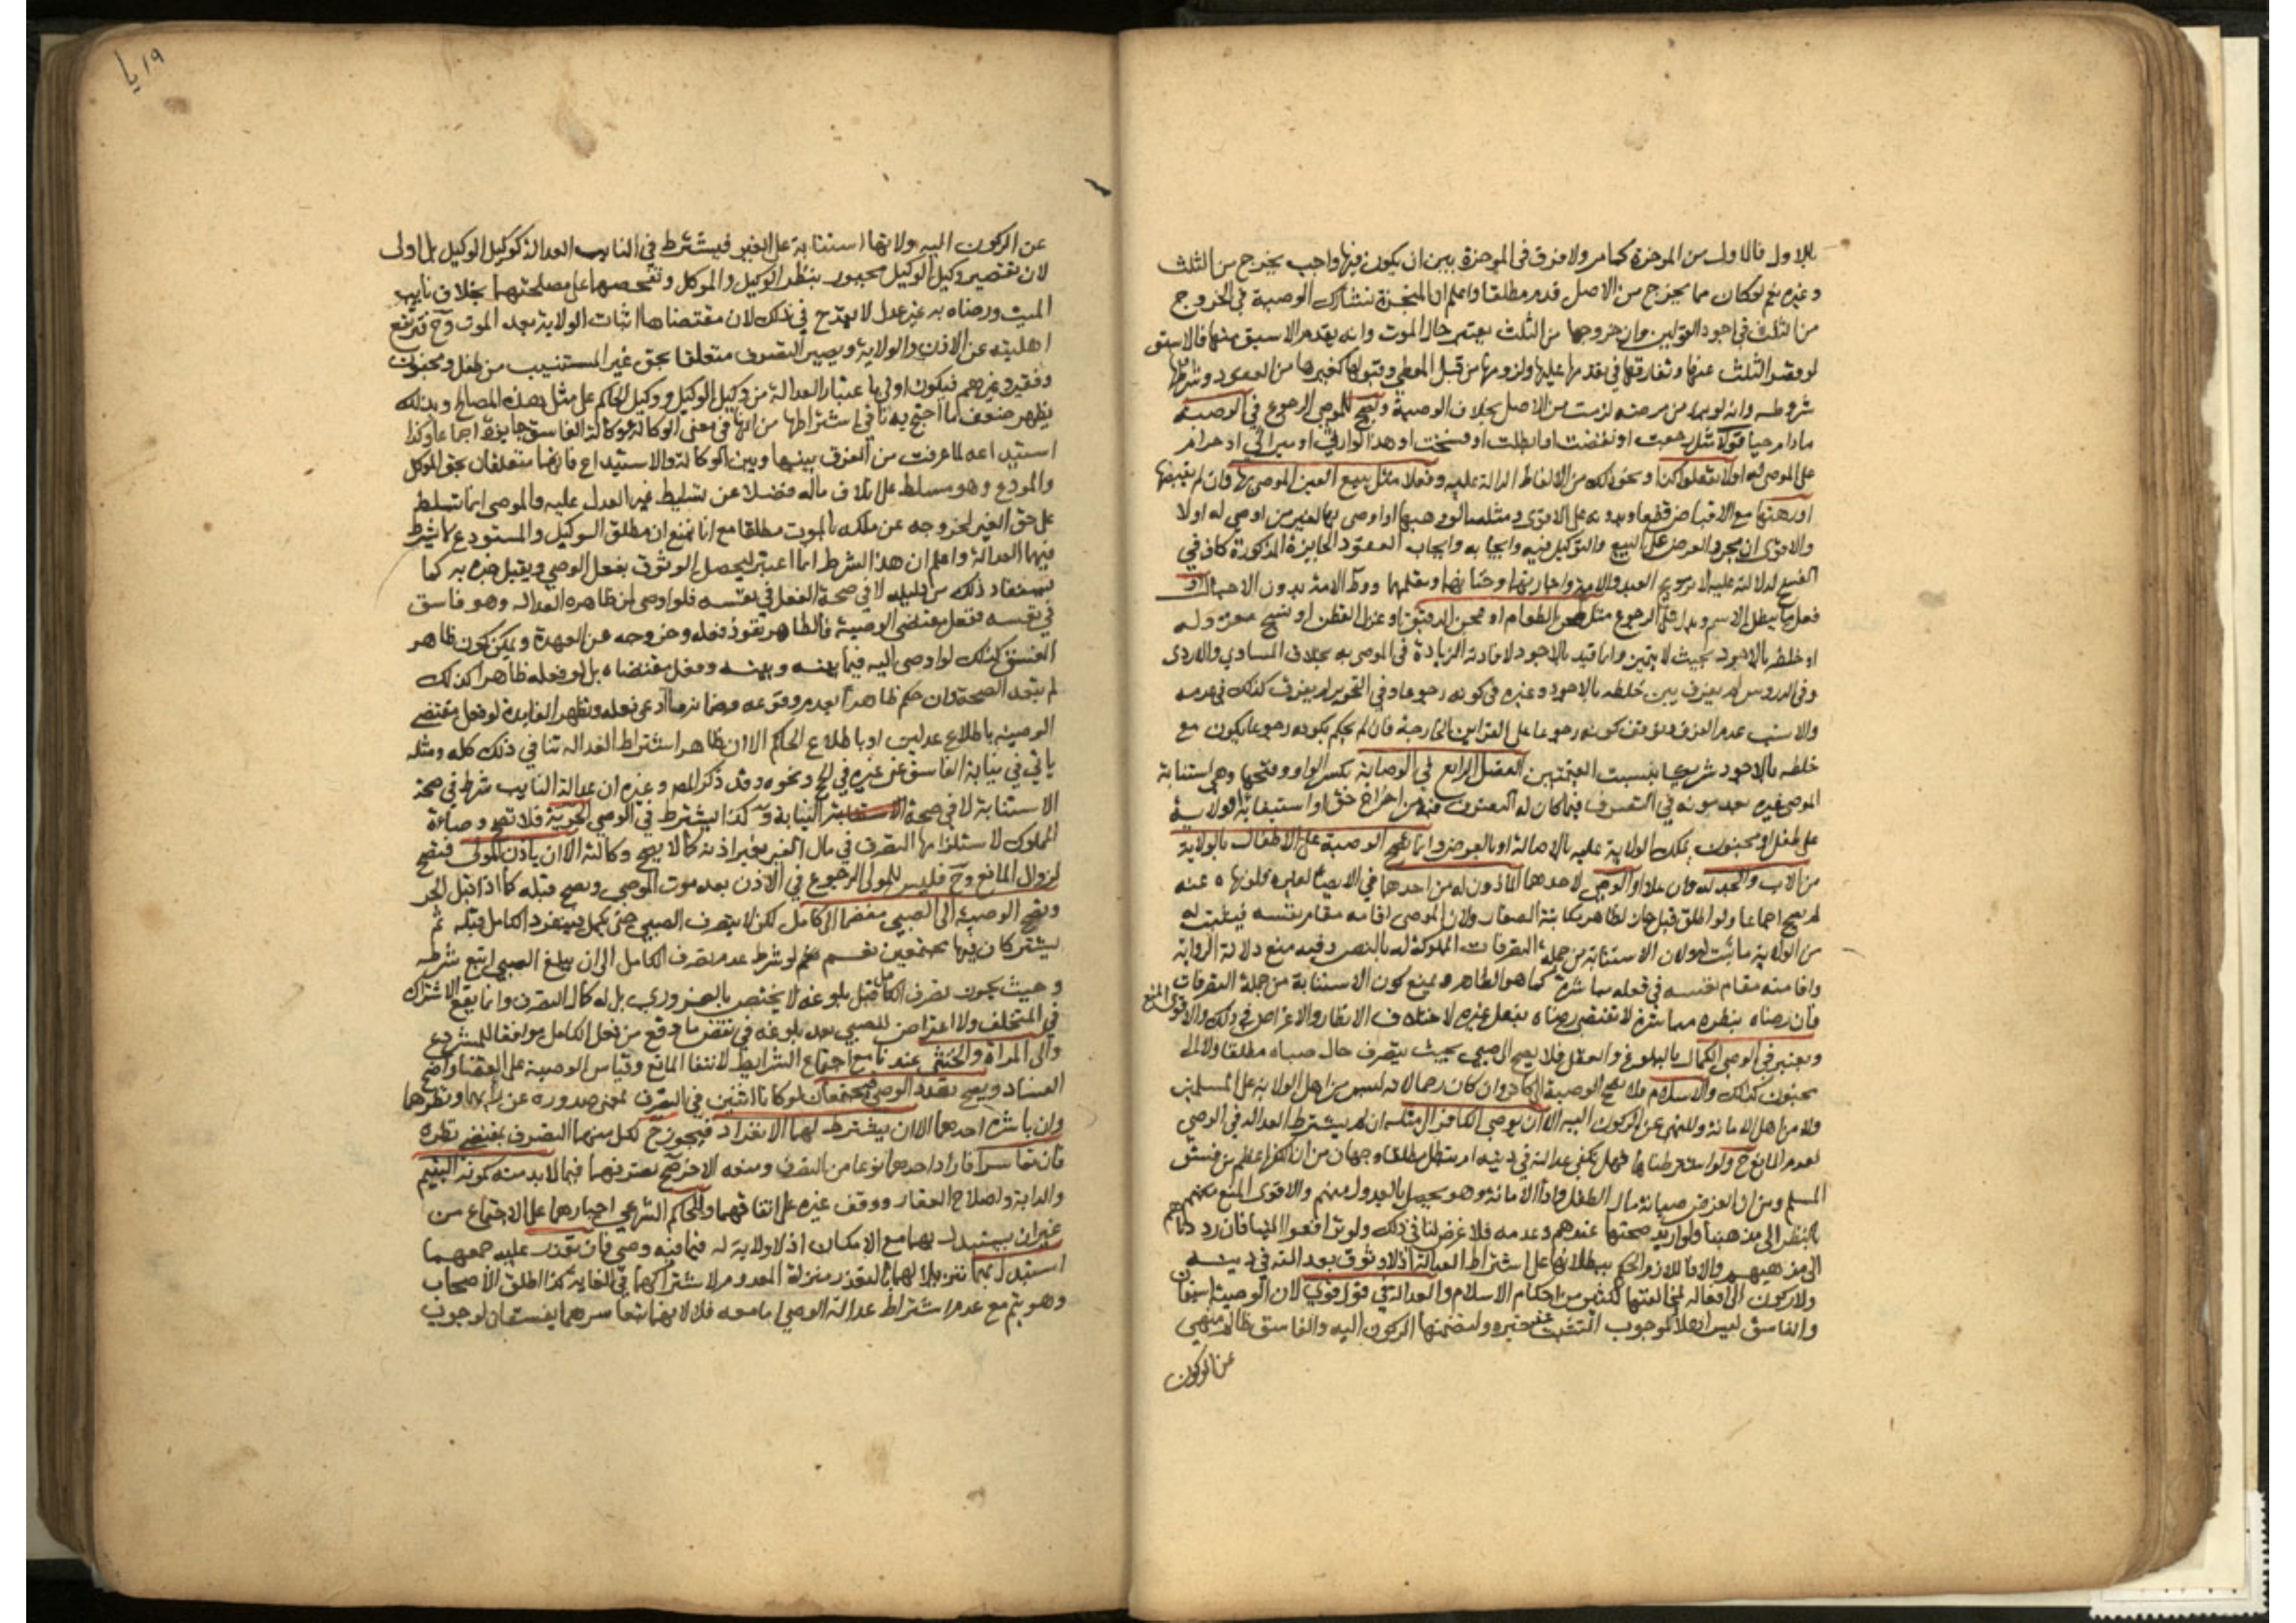 بالاول فالاول من الموخرة كما مر ولا فرق في الموخرة بين ان يكون فيها واجب يخرج من الثلث
وغيره نعم لو كان مما يخرج من الاصل قدم مطلقا واعلم ان المنجزة تشارك الوصية في الخروج
من الثلث في اجود القولين وان خروجها من الثلث يعتبر حال الموت وانه يقدم الاسبق منها فالاسبق
لو قصر الثلث عنها وتفارقها في تقدمها عليها ولزومها من قبل المعطي وقبولها كغيرها من العقود وشروطها
شروطه وانه لو برا من مرضه لزمت من الاصل بخلاف الوصية ويصح للموصي الرجوع في الوصية
ما دام حيا قولا مثل رجعت او نقضت او ابطلت او فسخت او هذا لوارثي او ميراثي او حرام
على الموصى له او لا تفعلوا كذا ونحو ذلك من الالفاظ الدالة عليه وفعلا مثل بيع العين الموصى بها وان لم يقبضها
او رهنها مع الاقباض قطعا وبدونه على الاقوى ومثله ما لو وهبها او اوصى بها لغير من اوصى له اولا
والاقوى ان مجرد العرض على البيع والتوكيل فيه وايجابه وايجاب العقود الجايزة المذكورة كاف في
الفسخ لدلالته عليه لا تزويج العبد والامة واجارتهما وختانهما وتعليمهما ووطء الامة بدون الاحبال او
فعل ما يبطل الاسم ويدل على الرجوع مثل طحن الطعام او عجن الدقيق او غزل القطن او نسج مغزوله
او خلطه بالاجود بحيث لا يتميز وانما قيد بالاجود لافادته الزيادة في الموصى به بخلاف المساوي والاردى
وفي الدروس لم يفرق بين خلطه بالاجود وغيره في كونه رجوعا وفي التحرير لم يفرق كذلك في عدمه
والانسب عدم الفرق وتوقف كونه رجوعا على القراين الخارجة فان لم يحكم بكونه رجوعا يكون مع
خلطه بالاجود شريكا بنسبة القيمتين الفصل الرابع في الوصاية بكسر الواو وفتحها وهي استنابة
الموصي غيره بعد موته في التصرف فيما كان له التصرف فيه من اخراج حق او استيفائه او ولاية
على طفل او مجنون يملك الولاية عليه بالاصالة او بالعرض وانما تصح الوصية على الاطفال بالولاية
من الاب والجد له وان علا او الوصي لاحدهما الماذون له من احدهما في الايصاء لغيره فلو نهاه عنه
لم يصح اجماعا ولو اطلق قيل جاز لظاهر مكاتبة الصفار ولان الموصي اقامه مقام نفسه فيثبت له
من الولاية ما ثبت له ولان الاستنابة من جملة التصرفات المملوكة له بالنص وفيه منع دلالة الرواية
واقامته مقام نفسه في فعله مباشرة كما هو الظاهر ويمنع كون الاستنابة من جملة التصرفات
فان رضاه بنظره مباشرة لا يقتضي رضاه بفعل غيره لاختلاف الانظار والاغراض في ذلك والاقوى المنع
ويعتبر في الوصي الكمال بالبلوغ والعقل فلا يصح الى صبي بحيث يتصرف حال صباه مطلقا ولا الى
مجنون كذلك والاسلام فلا تصح الوصية الى كافر وان كان رحما لانه ليس من اهل الولاية على المسلمين
ولا من اهل الامانة وللنهي عن الركون اليه الا ان يوصي الكافر الى مثله ان لم يشترط العدالة في الوصي
لعدم المانع ح ولو اشترطناها فهل تكفي عدالته في دينه ام تبطل مطلقا وجهان من ان الكفر اعظم من فسق
المسلم ومن ان الغرض صيانة مال الطفل واداء الامانة وهو يحصل بالعدول منهم والاقوى المنع منهم
بالنظر الى مذهبنا ولو اريد صحتها عندهم وعدمه فلا غرض لنا في ذلك ولو ترافعوا الينا فان رددناهم
الى مذهبهم والا فاللازم الحكم ببطلانها على اشتراط العدالة اذ لا وثوق بعدالته في دينه
ولا ركون الى افعاله لمخالفتها لكثير من احكام الاسلام والعدالة في قول قوي لان الوصية استيمان
والفاسق ليس اهلا لوجوب التثبت عند خبره ولتضمنها الركون اليه والفاسق ظالم منهي
عن الركون
١٩
عن الركون اليه ولانها استنابة على الغير فيشترط في النايب العدالة كوكيل الوكيل بل اولى
لان تقصير وكيل الوكيل مجبور بنظر الوكيل والموكل وتفحصهما على مصلحتهما بخلاف نايب
الميت ورضاه به غير عدل لا يقدح في ذلك لان مقتضاها اثبات الولاية بعد الموت وح فترتفع
اهليته عن الاذن والولاية ويصير التصرف متعلقا بحق غير المستنيب من طفل ومجنون
وفقير وغيرهم فيكون اولى باعتبار العدالة من وكيل الوكيل ووكيل الحاكم على مثل هذه المصالح وبذلك
يظهر ضعف ما احتج به نافي اشتراطها من انها في معنى الوكالة ووكالة الفاسق جايزة اجماعا وكذا
استيداعه لما عرفت من الفرق بينها وبين الوكالة والاستيداع فانهما متعلقان بحق الموكل
والمودع وهو مسلط على اتلاف ماله فضلا عن تسليط غير العدل عليه والموصي انما سلط
على حق الغير لخروجه عن ملكه بالموت مطلقا مع انا نمنع ان مطلق الوكيل والمستودع لا يشترط
فيهما العدالة واعلم ان هذا الشرط انما اعتبر ليحصل الوثوق بفعل الوصي ويقبل خبره به كما
يستفاد ذلك من دليله لا في صحة الفعل في نفسه فلو اوصى لمن ظاهره العدالة وهو فاسق
في نفسه ففعل مقتضى الوصية فالظاهر نفوذ فعله وخروجه عن العهدة ويمكن كون ظاهر
الفسق كذلك لو اوصى اليه فيما بينه وبينه وفعل مقتضاه بل لو فعله ظاهرا كذلك
لم تبعد الصحة وان حكم ظاهرا بعدم وقوعه وضمانه ما ادعى فعله وتظهر الفايدة لو فعل مقتضى
الوصية باطلاع عدلين او باطلاع الحاكم الا ان ظاهر اشتراط العدالة ينافي ذلك كله ومثله
ياتي في نيابة الفاسق عن غيره في الحج ونحوه وقد ذكر المص وغيره ان عدالة النايب شرط في صحة
الاستنابة لا في صحة النيابة و كذا يشترط في الوصي الحرية فلا تصح وصاية
المملوك لاستلزامها التصرف في مال الغير بغير اذنه كما لا تصح وكالته الا ان ياذن المولى فتصح
لزوال المانع وح فليس للمولى الرجوع في الاذن بعد موت الموصي ويصح قبله كما اذا قبل الحر
وتصح الوصية الى الصبي منضما الى كامل لكن لا يتصرف الصبي حتى يكمل فينفرد الكامل قبله ثم
يشتركان فيها مجتمعين نعم لو شرط عدم تصرف الكامل الى ان يبلغ الصبي اتبع شرطه
وحيث يجوز تصرف الكامل قبل بلوغه لا يختص بالضروري بل له كمال التصرف وانما يقع الاشتراك
في المتخلف ولا اعتراض للصبي بعد بلوغه في نقض ما وقع من فعل الكامل موافقا للمشروع
والى المراة والخنثى عندنا مع اجتماع الشرايط لانتفاء المانع وقياس الوصية على القضاء واضح
الفساد ويصح تعدد الوصي فيجتمعان لو كانا اثنين في التصرف بمعنى صدوره عن رايهما ونظرهما
وان باشره احدهما الا ان يشترط لهما الانفراد فيجوز ح لكل منهما التصرف بمقتضى نظره
فان تعاسرا فاراد احدهما نوعا من التصرف ومنعه الاخر صح تصرفهما فيما لا بد منه كمونة اليتيم
والدابة واصلاح العقار ووقف غيره على اتفاقهما وللحاكم الشرعي اجبارهما على الاجتماع من
غير ان يستبدل بهما مع الامكان اذ لا ولاية له فيما فيه وصي فان تعذر عليه جمعهما
استبدل بهما تنزيلا لهما بالتعذر منزلة المعدوم لاشتراكهما في الغاية كذا اطلق الاصحاب
وهو يتم مع عدم اشتراط عدالة الوصي اما معه فلا لانهما بتعاسرهما يفسقان لوجوب